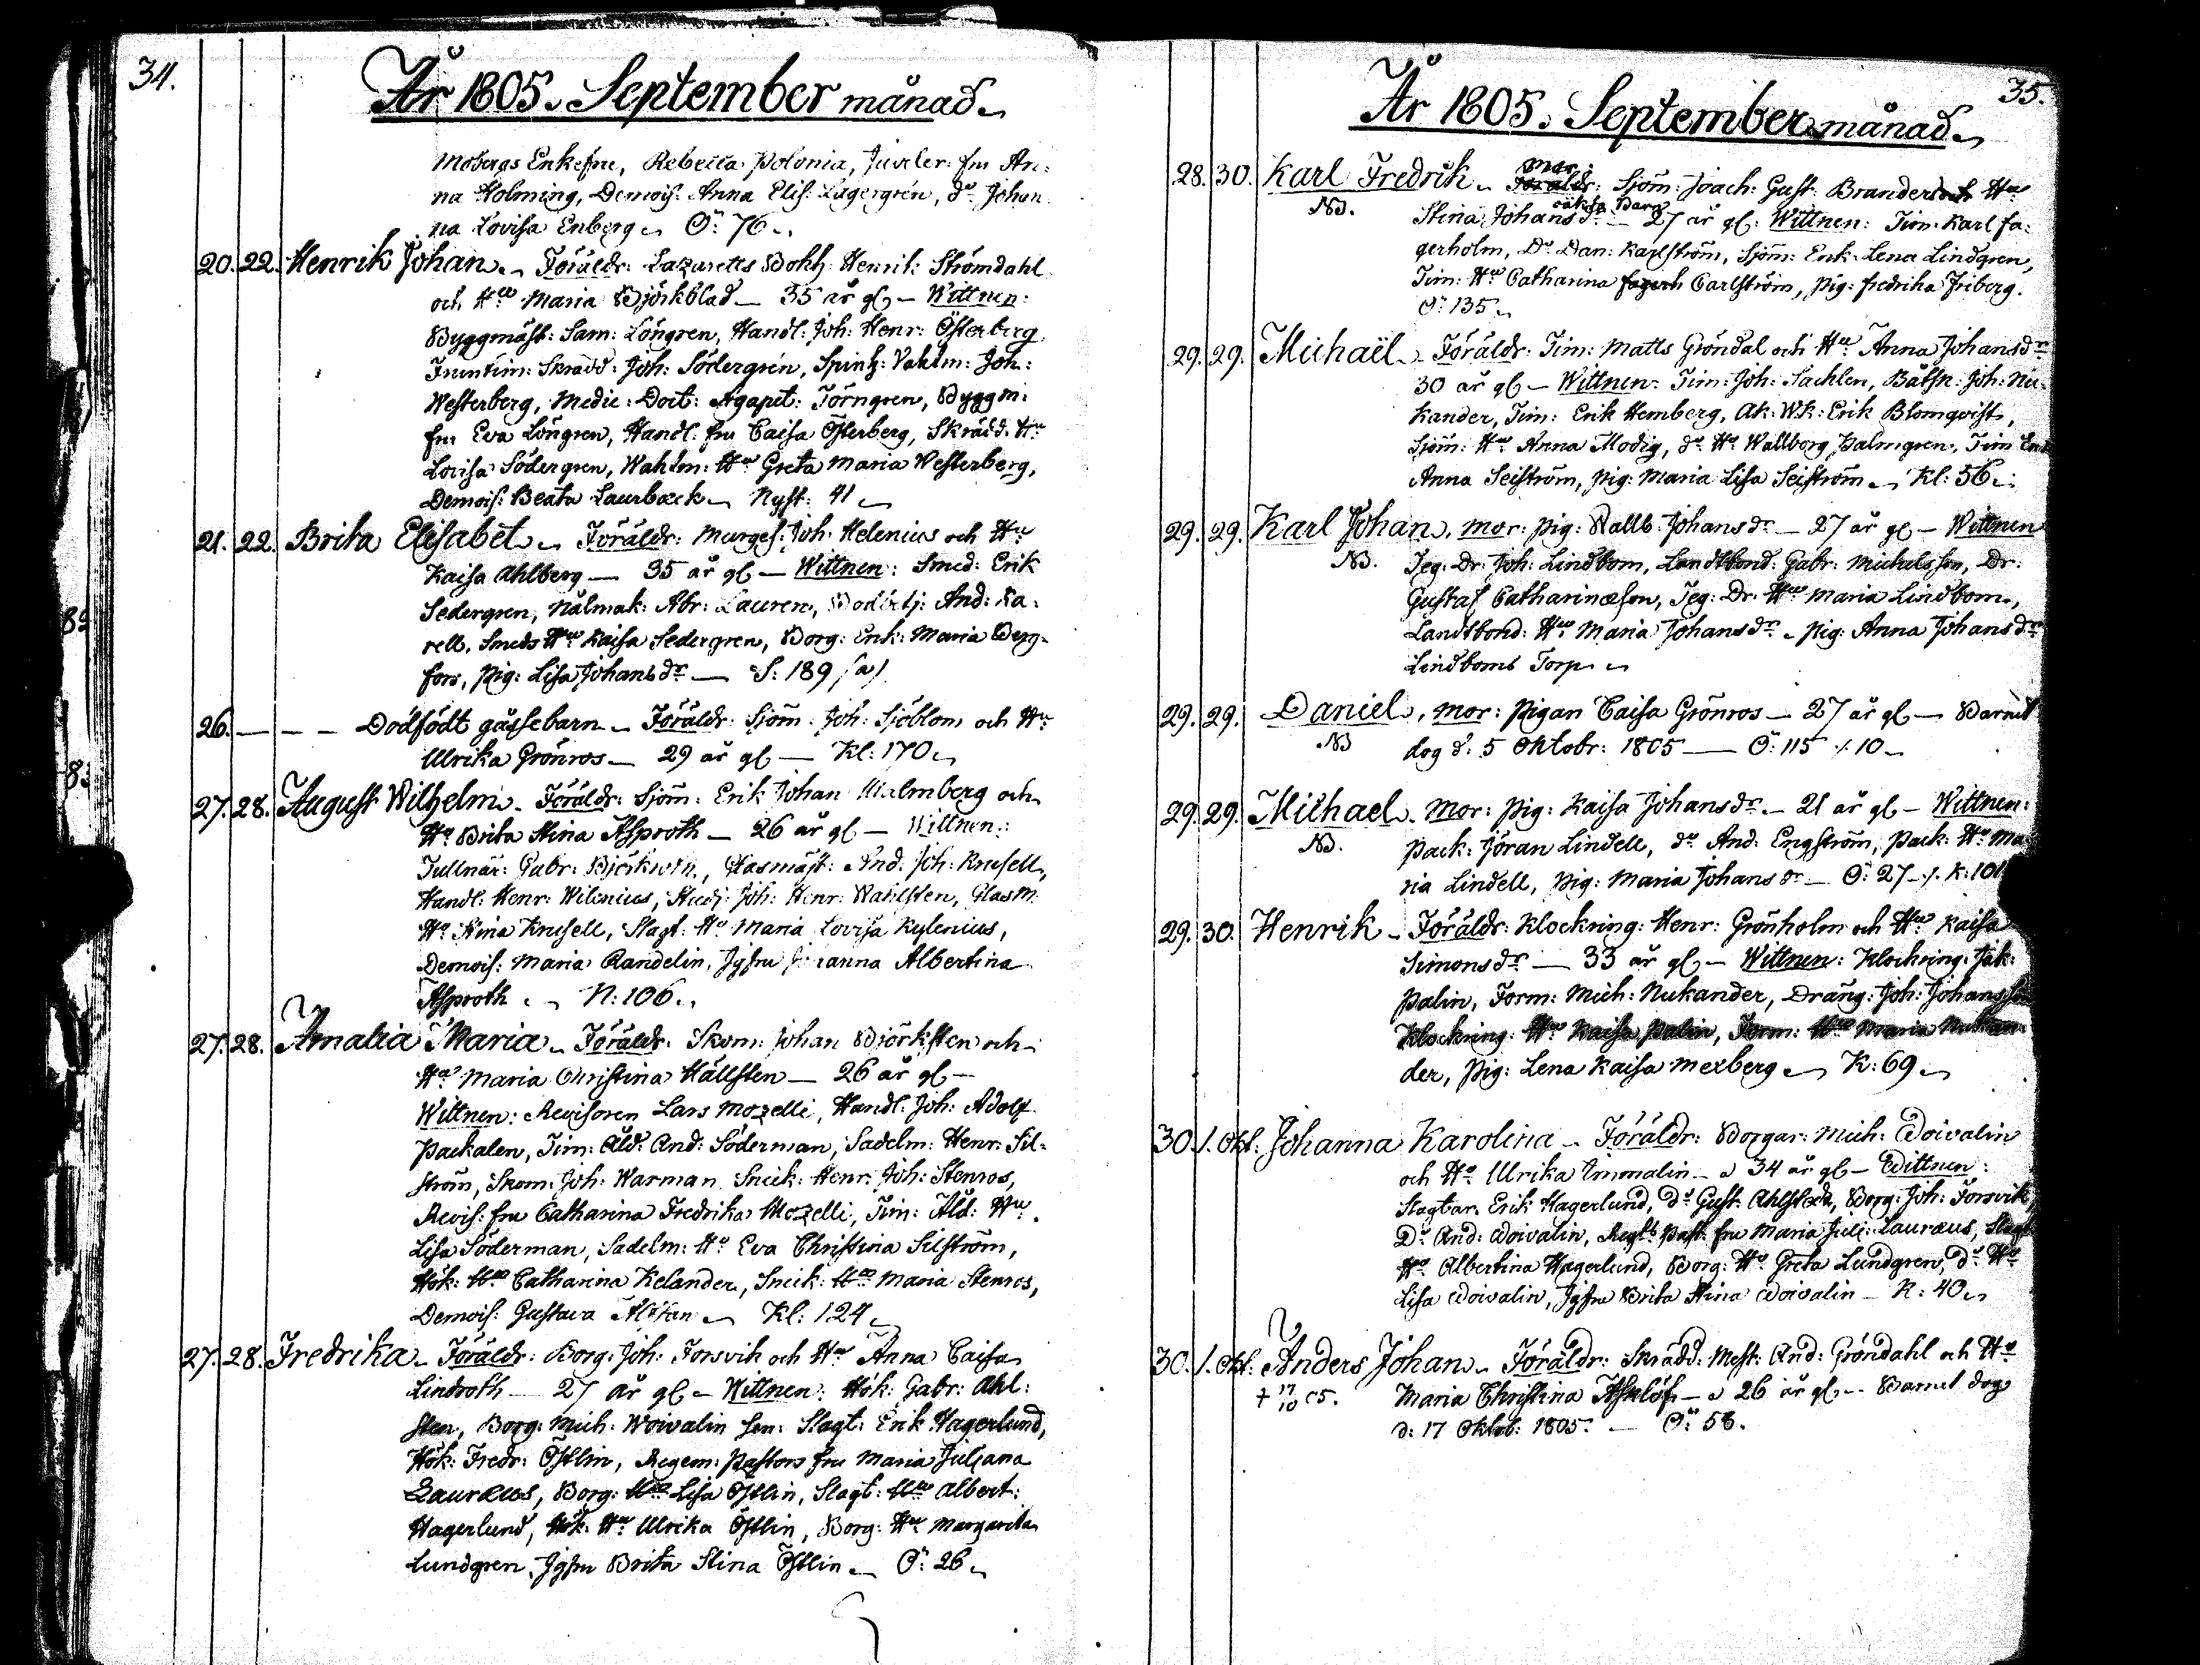 34.
År 1805. September månad.
Mobergs Enkefru, Rebecca Polonia, Juveler: fru An:
na Holming, Demois: Anna Elis: Lagergren, do Johan
na Lovisa Enberg. Ö: 76.
20. 22. Henrik Johan. Föräldr: Lazaretts Bokh: Henrik Strömdahl
och Hu Maria Björkblad — 35 år gl. — Wittnen:
Byggmäst: Sam: Löngren, Handl: Joh: Henr: Österberg
Fruntim: Skrädd: Joh: Södergren, Vaktm: Joh:
Westerberg, Medic: Doct: Agapet: Törngren, Byggm:
fru Eva Löngren, Handl: fru Caisa Österberg, Skrädd: Hu
Lovisa Södergren, Waktm: Hu Greta Maria Westerberg,
Demois: Beata Laurbæck. Nyst: 41.
21. 22. Brita Elisabet. Föräldr: Murges: Joh: Helenius och Hu
Kaisa Ahlberg — 35 år gl — Wittnen: Smed: Erik
Sedergren, Nålmak: Abr: Lauren, And: Ka:
rell, Smeds Hu Kaisa Sedergren, Borg: Enk: Maria Berg-
fors, Pig: Lisa Johansdr — S: 189 (a)
26. — — — Dödfödt gåssebarn. Föräldr: Sjöm: Joh: Sjöblom och Hu
Ulrika Grönros — 29 år gl — Kl: 170.
27. 28. August Wilhelm. Föräldr: Sjöm: Erik Johan Malmberg och
Hu Brita Stina Asproth — 26 år gl — Wittnen:
Tullnär: Gabr: Glasmäst: And: Joh: Krusell,
Handl: Henr: Wilenius, Joh: Henr: Wahlsten, Glasm:
Hu Stina Krusell, Slagt: Hu Maria Lovisa Kylenius,
Demois: Maria Randelin, Jgfru Johanna Albertina
Asproth. N: 106.
27. 28. Amalia Maria. Föräldr: Skom: Johan Björksten och
Hu Maria Christina Hällsten — 26 år gl —
Wittnen: Revisoren Lars Mozelli, Handl: Joh: Adolf
Packalen, Tim: Åld: And: Söderman, Sadelm: Henr: Sil-
ström, Skom: Joh: Warman, Snick: Henr: Joh: Stenros,
Revis: fru Catharina Fredrika Mozelli, Tim: Åld: Hu
Lisa Söderman, Sadelm: Hu Eva Christina Silström,
Hök: Hu Catharina Kelander, Snick: Hu Maria Stenros,
Demois: Gustava Kl: 124.
27. 28. Fredrika. Föräldr: Borg: Joh: Forsvik och Hu Anna Caisa
Lindroth — 27 år gl — Wittnen: Hök: Gabr: Ahl:
sten, Borg: Mich: Woivalin sen: Slagt: Erik Hagerlund,
Hök: Fredr: Östlin, Regem: Pastors fru Maria Juliana
Lauræus, Borg: Hu Lisa Östlin, Slagt: Hu Albert:
Hagerlund, Hök: Hu Ulrika Östlin, Borg: Hu Margareta
Lundgren, Jgfru Brita Stina Östlin. Ö: 26.
35.
År 1805. September månad.
28. 30. Karl Fredrik. Mor: Föräldr: Sjöm: Joach: Gust: Branders och Hu
NB. Stina Johansdr oäkta Barn — 27 år gl: Wittnen: Tim: Karl Fa:
gerholm, Do Dan: Karlström, Sjöm: Enk: Lena Lindgren,
Tim: Hu Catharina Carlström, Pig: Fredrika Friberg.
Ö: 135.
29. 29. Michaël. Föräldr: Tim: Matts Gröndal och Hu Anna Johansdr
30 år gl — Wittnen: Tim: Joh: Sachlen, Båtsk: Joh: Nu-
kander, Tim: Erik Hemberg, Ak: Wk: Erik Blomqvist,
Sjöm: Hu Anna Modig, do Hu Wallborg Palmgren, Tim Enk
Anna Seiström, Pig: Maria Lisa Seiström. Kl: 56.
29. 29. Karl Johan, Mor: Pig: Wallb: Johansdr — 27 år gl — Wittnen
NB. Teg: Dr: Joh: Lindbom, Landtbond: Gabr: Michelsson, Dr:
Gustaf Catharinæson, Teg: Dr: Hu Maria Lindbom,
Landtbond: Hu Maria Johansdr, Pig: Anna Johansdr
Lindboms Torp.
29. 29. Daniel, Mor: Pigan Caisa Grönros — 27 år gl — Barnet
NB dog d: 5 Oktobr: 1805 — Ö: 115 /. 10.
29. 29. Michael. Mor: Pig: Kaisa Johansdr — 21 år gl — Wittnen:
NB. Pack: Jöran Lindell, do And: Engström, Pack: Hu Ma
ria Lindell, Pig: Maria Johansdr — Ö: 27 /. K: 101
29. 30. Henrik. Föräldr: Klockring: Henr: Grönholm och Hu Kaisa
Simonsdr — 33 år gl — Wittnen: Klockring: Jak:
Palin, Form: Mich: Nukander, Dräng: Joh: Johansson
Klockring: Hu Kaisa Palin, Form: Hu Maria Nukan-
der, Pig: Lena Kaisa Mexberg. K: 69.
30. 1. Okt: Johanna Karolina. Föräldr: Borgar: Mich: Woivalin
och Hu Ulrika Immonalin — 34 år gl — Wittnen:
Slagtar: Erik Hagerlund, Do Gust: Ahlstedt, Borg: Joh: Forsvik,
Do And: Woivalin, Regts Past: fru Maria Juli: Lauræus, Slagt
Hu Albertina Hagerlund, Borg: Hu Greta Lundgren, Do Hu
Lisa Woivalin, Jgfru Brita Stina Woivalin — K: 40.
30. 1. Okt: Anders Johan. Föräldr: Skrädd: Mest: And: Gröndahl och Hu
† 17/10 05. Maria Christina Asklöf — 26 år gl — Barnet dog
d: 17 Oktob: 1805. — Ö: 58.